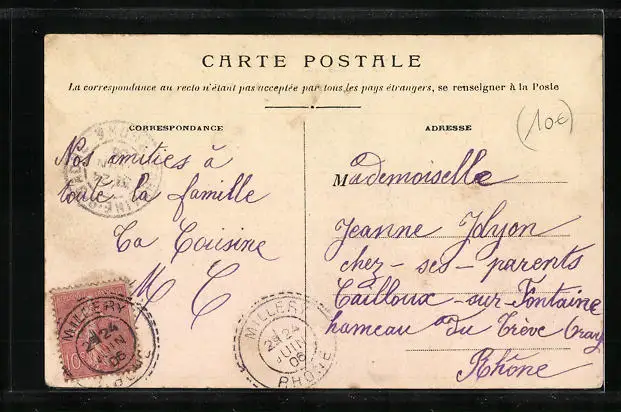 CARTE POSTALE
La correspondance au recto n'étant pas acceptée par tous les pays étrangers, se renseigner à la Poste
(10€)
CORRESPONDANCE
Nos amitiés à
toute la famille
Ta Cousine
M C
ADRESSE
Mademoiselle
Jeanne
chez - ses - parents
Cailloux - sur - Fontaine
hameau du Trève
Rhône
10
MILLERY
24
JUIN
06
RHÔNE
MILLERY
24
JUIN
06
RHÔNE